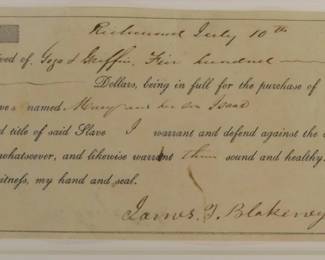 Richmond July 10th
ived of, Goza & Griffin, Five hundred
Dollars, being in full for the purchase of
ve named Mary and her son Isaac
d title of said Slave I warrant and defend against the c
whatsoever, and likewise warrant them sound and healthy.
itness, my hand and seal.
James T. Blakeney